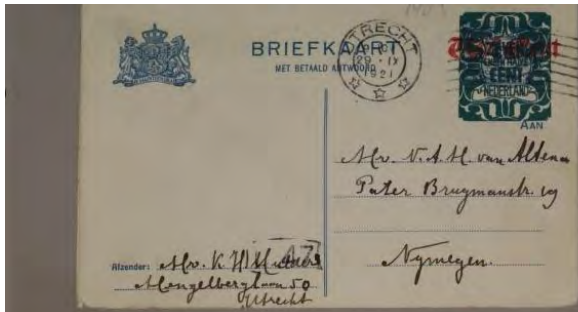 BRIEFKAART
MET BETAALD ANTWOORD
UTRECHT
29 · IV
1921
CENT
NEDERLAND
AAN
Mr. V. A. M. van Altena
Pater Brugmanstr. 19
Nymegen.
Afzender: Mr. K.
Mengelberglaan 50
Utrecht